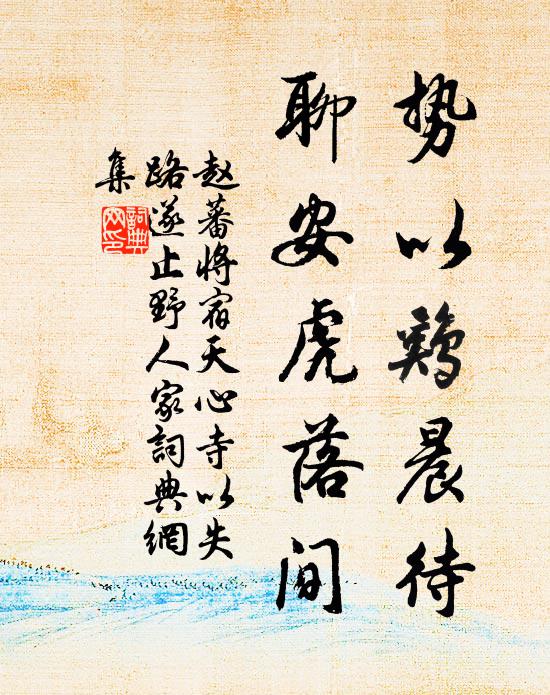 势以鸡晨待
聊安虎落间
赵蕃将宿天心寺以失
路遂止野人家词典網
集
詞典
网印